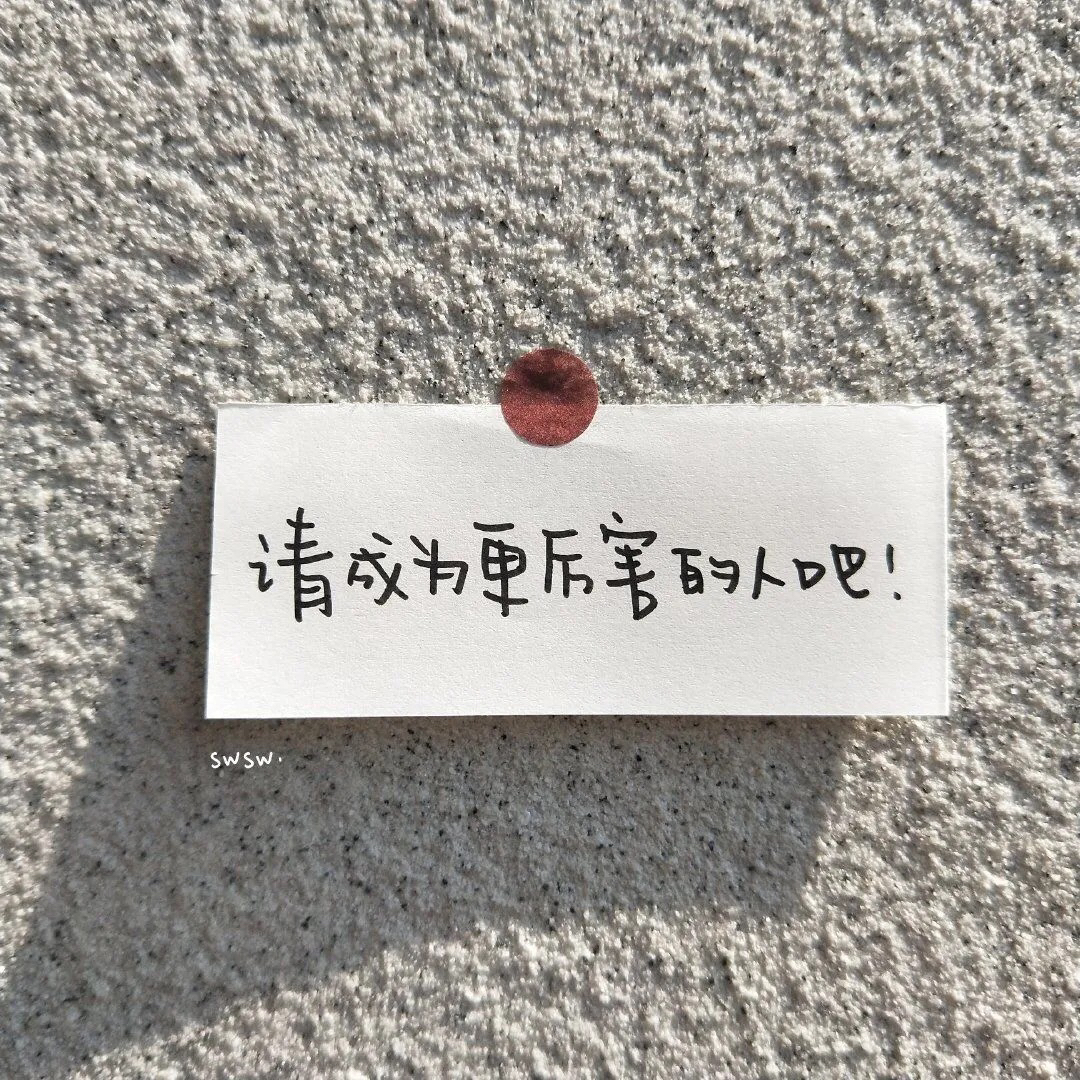 请成为更厉害的人吧!
swsw.